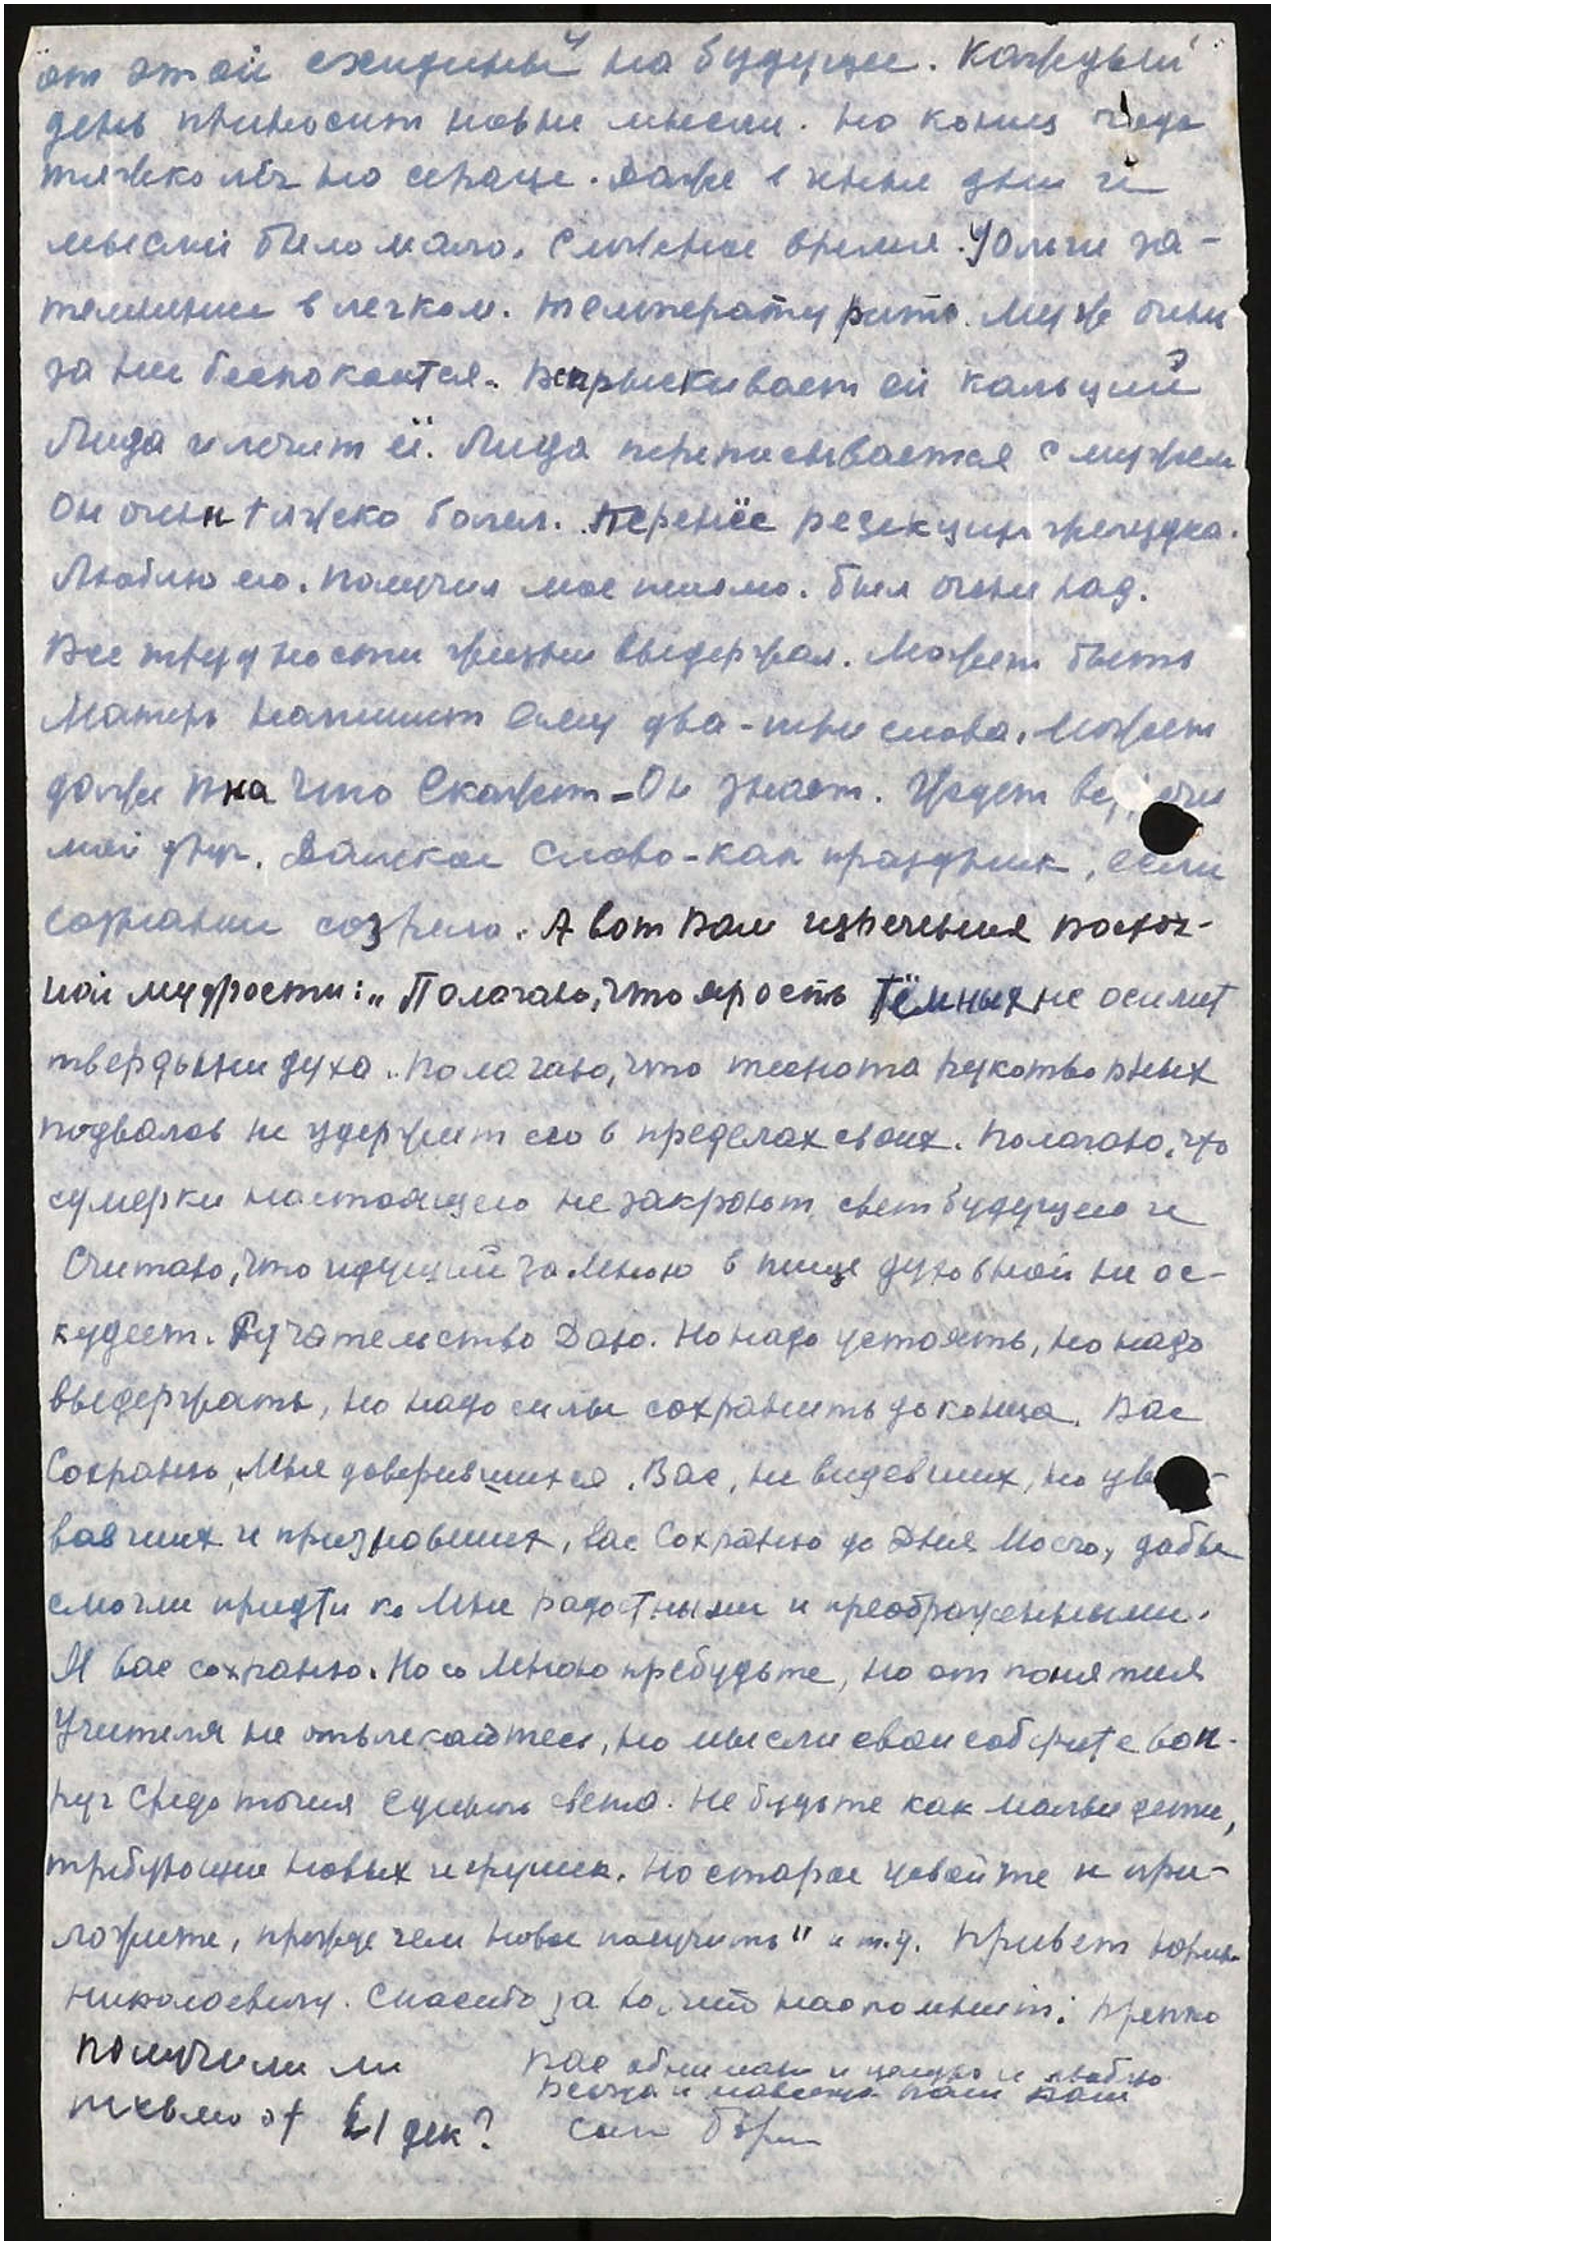 от этой ехидины на будущее. Каждый
день приносит новые мысли. Но конец года
тяжко лёг на сердце. Даже в иные дни и
мыслей было мало. Сложное время. У Ольги за-
темнение в легком. Температурит. Муж очень
за нее беспокоится. Вспрыскивает ей кальций
Лида и лечит её. Лида переписывается с мужем
Он очень тяжко болел. Перенёс резекцию желудка.
Люблю его. Получил мое письмо. Был очень рад.
Все трудности жизни выдержал. Может быть
Матерь напишет ему два-три слова. Может
даже и на что Скажет – Он знает. Ждет
мой друг. Далекое Слово – как праздник, если
сознание созрело. А вот Вам изречения восточ-
ной мудрости: „Полагаю, что ярость тёмных не осилит
твердыни духа. Полагаю, что теснота рукотворных
подвалов не удержит его в пределах своих. Полагаю, что
сумерки настоящего не закроют свет будущего и
Считаю, что идущий за Мною в пище духовной не ос-
кудеет. Ручательство Даю. Но надо устоять, но надо
выдержать, но надо силы сохранить до конца. Вас
Сохраню, Мне доверившихся. Вас, не видевших, но
вавших и признавших, вас Сохраню до Дня Моего, дабы
смогли придти ко Мне радостными и преображенными.
Я вас сохраню. Но со Мною пребудьте, но от понятия
Учителя не отвлекайтесь, но мысли свои соберите вок-
руг Средоточия Единого света. Не будьте как малые дети,
требующие новых игрушек. Но старое усвойте и при-
ложите, прежде чем новое получить" и т.д. Привет Юрию
Николаевичу. Спасибо за то, что нас помнит. Крепко
Вас обнимаю и целую и люблю
Всегда и навсегда Ваш Ваш
сын Борис
Получили ли
письмо от 21 дек?